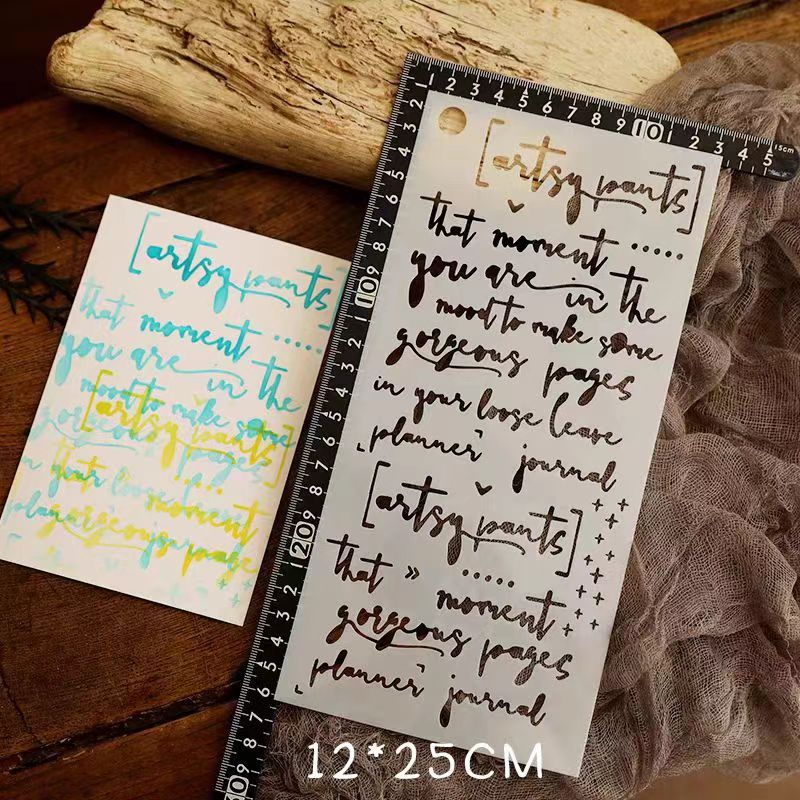 1 2 3 4 5 6 7 8 9 10 1 2 3 4 5 15cm
1 2 3 4 5 6 7 8 9 10 1 2 3 4 5 6 7 8 9 20 1 2 3 4 5 6 7 8 9
[artsy pants]
that moment .....
you are in the
mood to make some
gorgeous pages
in your loose leave
planner" journal
[artsy pants]
that » .....
moment
gorgeous pages
planner" journal
[artsy pants]
that moment .....
you are in the
mood to make some
[artsy pants]
gorgeous pages
in your loose
moment
gorgeous pages
12*25CM